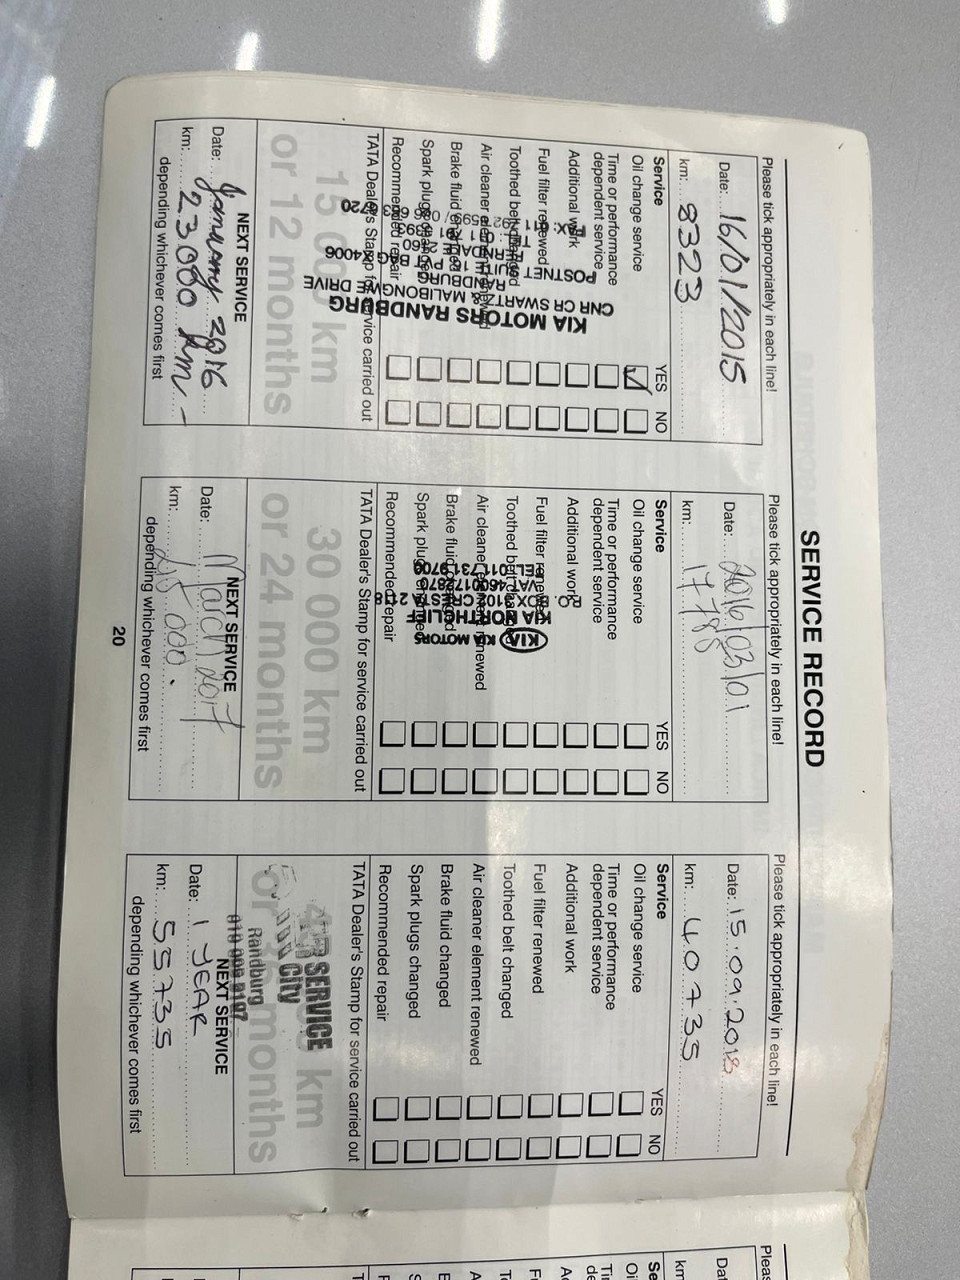 SERVICE RECORD
Please tick appropriately in each line!
Date: 16/01/2015
km: 8323
Service YES NO
Oil change service
Time or performance
dependent service
Additional work
Fuel filter renewed
Toothed belt changed
Air cleaner element renewed
Brake fluid changed
Spark plugs changed
Recommended repair
KIA MOTORS RANDBURG
CNR CR SWARTZ & MALIBONGWE DRIVE
RANDBURG
POSTNET SUITE 126 P VT BAG X4006
TATA Dealer's Stamp for service carried out
15 000 km
or 12 months
NEXT SERVICE
Date: January 2016
km: 23000 km -
depending whichever comes first
Please tick appropriately in each line!
Date: 2016/03/01
km: 17788
Service YES NO
Oil change service
Time or performance
dependent service
Additional work
Fuel filter renewed
Toothed belt changed
Air cleaner element renewed
Brake fluid changed
Spark plugs changed
Recommended repair
KIA
KIA MOTORS
KIA NORTHCLIFF
TATA Dealer's Stamp for service carried out
30 000 km
or 24 months
NEXT SERVICE
Date: March 2017
km: 000.
depending whichever comes first
Please tick appropriately in each line!
Date: 15.09.2018
km: 40735
Service YES NO
Oil change service
Time or performance
dependent service
Additional work
Fuel filter renewed
Toothed belt changed
Air cleaner element renewed
Brake fluid changed
Spark plugs changed
Recommended repair
TATA Dealer's Stamp for service carried out
km
SERVICE
City
or months
Randburg
NEXT SERVICE
Date: 1 YEAR
km: 55735
depending whichever comes first
20